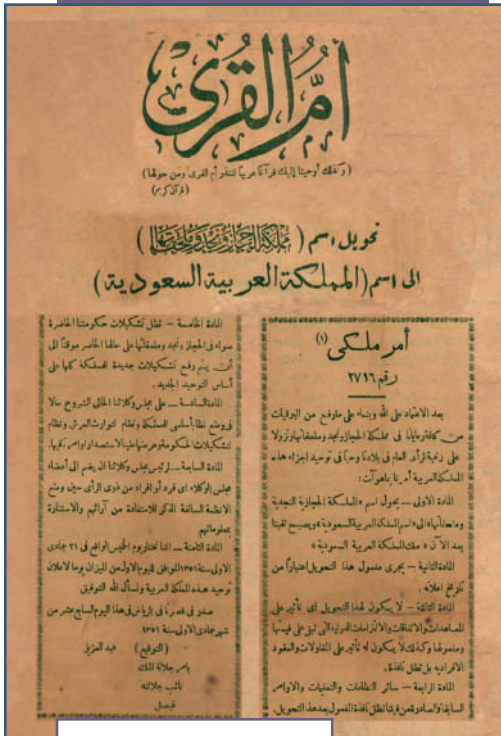 أم القرى
(وكذلك أوحينا إليك قرآنا عربيا لتنذر أم القرى ومن حولها)
(قرآن كريم)
تحويل اسم (مملكة الحجاز ونجد وملحقاتها)
الى اسم (المملكة العربية السعودية)
أمر ملكي (١)
رقم ٢٧١٦
بعد الاعتماد على الله وبناء على مارفع من البرقيات
من كافة رعايانا في مملكة الحجاز ونجد وملحقاتها ونزولا
على رغبة الرأى العام في بلادنا وحبا في توحيد اجزاء هذه
المملكة العربية أمرنا بما هو آت:
المادة الاولى — يحول اسم «المملكة الحجازية النجدية
وملحقاتها» الى «اسم المملكة العربية السعودية» ويصبح لقبنا
بعد الآن «ملك المملكة العربية السعودية»
المادة الثانية — يجرى مفعول هذا التحويل اعتبارا من
تاريخ اعلانه.
المادة الثالثة — لا يكون لهذا التحويل اى تأثير على
المعاهدات والاتفاقات والالتزامات الدولية التى تبقى على قيمتها
ومفعولها وكذلك لا يكون له تأثير على المقاولات والعقود
الافراديه بل تظل نافذة.
المادة الرابعة — سائر النظامات والتعليمات والاوامر
السابقة والصادرة من قبلنا تظل نافذة المفعول بعد هذا التحويل.
المادة الخامسة — تظل تشكيلات حكومتنا الحاضرة
سواء فى الحجاز ونجد وملحقاتها على حالها الحاضر موقتا الى
أن يتم وضع تشكيلات جديدة للمملكة كلها على
أساس التوحيد الجديد.
المادة السادسة — على مجلس وكلائنا الحالى الشروع حالا
فى وضع نظام أساسى للمملكة ونظام لتوارث العرش ونظام
لتشكيلات الحكومة وعرضها علينا لاستصدار اوامرنا فيها.
المادة السابعة — لرئيس مجلس وكلائنا ان يضم الى أعضاء
مجلس الوكلاء اى فرد أو افراد من ذوى الرأى حين وضع
الانظمة السالفة الذكر للاستفادة من آرائهم والاستنارة
بمعلوماتهم
المادة الثامنة — اننا نختار يوم الخميس الواقع فى ٢١ جمادى
الاولى سنة ١٣٥١ الموافق لليوم الاول من الميزان يوما لاعلان
توحيد هذه المملكة العربية ونسأل الله التوفيق
صدر فى قصرنا فى الرياض فى هذا اليوم السابع عشر من
شهر جمادى الاولى سنة ١٣٥١
(التوقيع) عبد العزيز
بامر جلالة الملك
نائب جلالته
فيصل